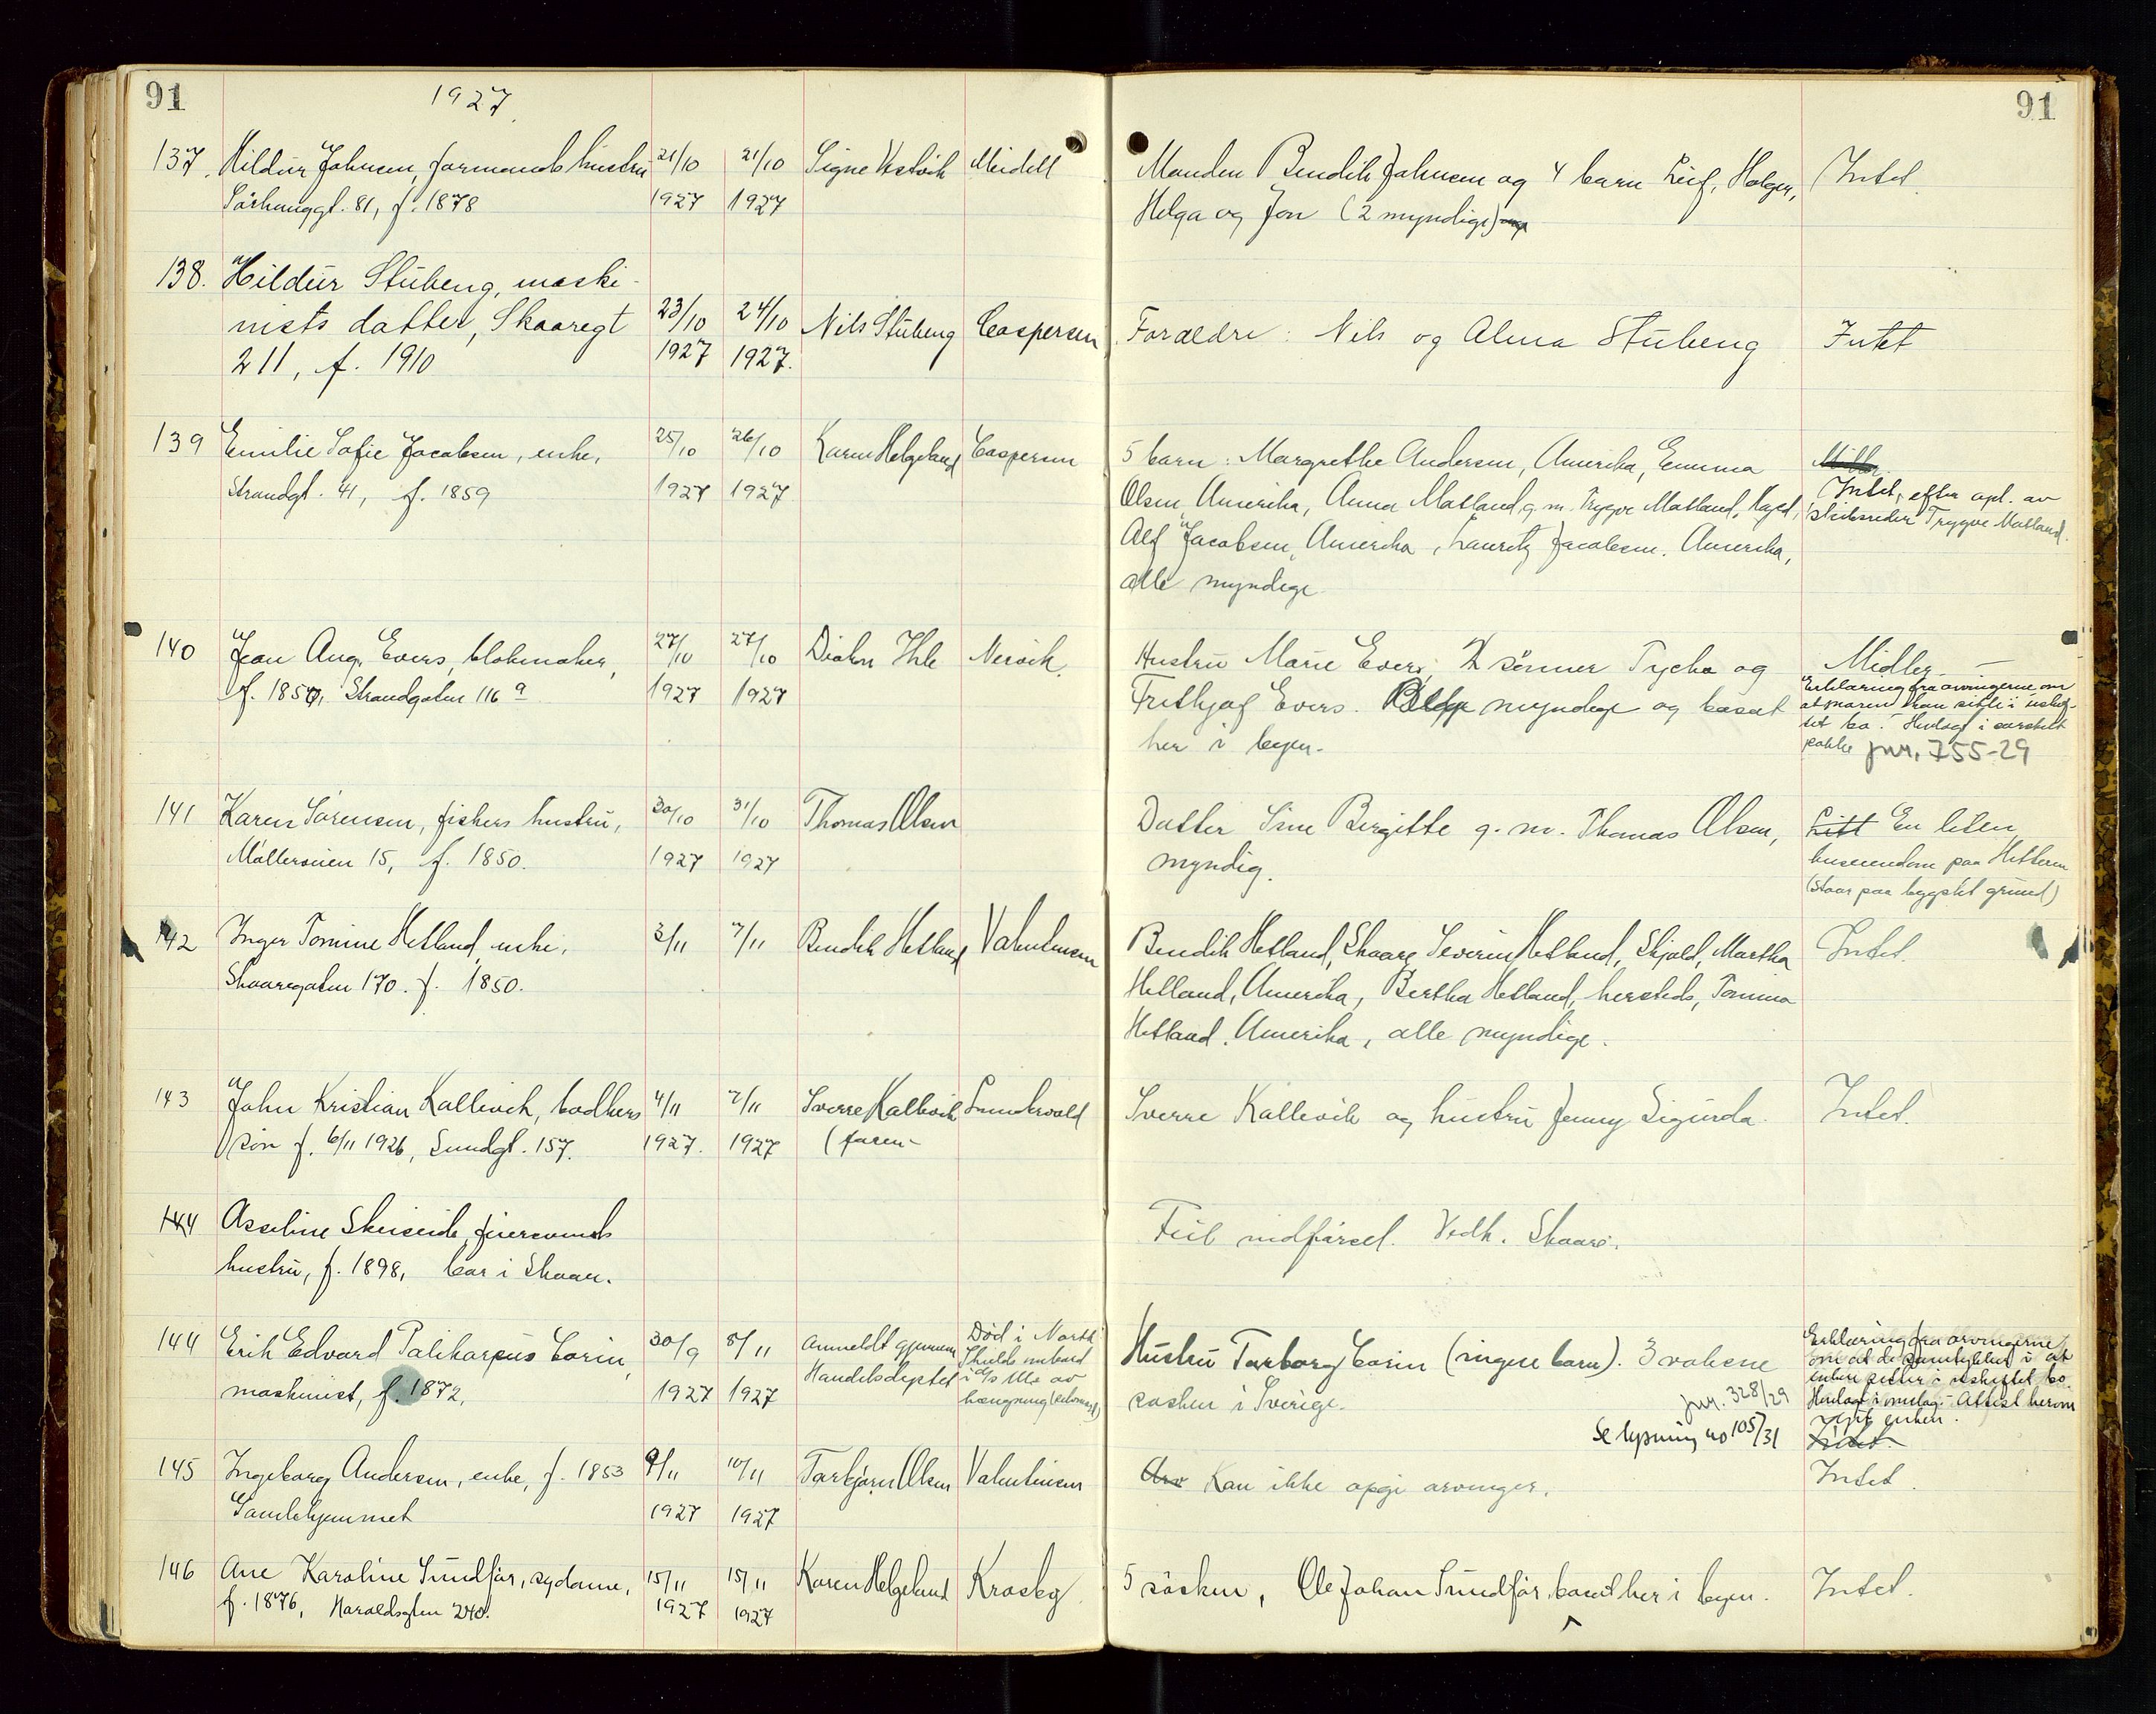 91
1927.
91
137. Hildur Johnsen, formands hustru 21/10 21/10 Signe Vestvik Meidell Manden Bendik Johnsen og 4 barn Leif, Holger, Intet.
Sørhauggt. 81, f. 1878 1927 1927 Helga og Jon (2 myndige)
138. Hildur Stubeng, maski-
nists datter, Skaaregt 23/10 24/10 Nils Stubeng Caspersen Forældre: Nils og Alma Stubeng Intet
211, f. 1910 1927 1927.
139 Emilie Sofie Jacobsen, enke, 25/10 26/10 Karen Helgeland Caspersen 5 barn: Margrethe Andersen, Amerika, Emma Midler.
Strandgt. 41, f. 1859 1927 1927 Olsen, Amerika, Anna Matland g. m. Trygve Matland, Hgsd, Intet, efter opl. av
Alf Jacobsen, Amerika, Lauritz Jacobsen. Amerika, skibsreder Trygve Matland.
alle myndige
140 Jean Aug. Evers, blokmaker, 27/10 27/10 Diakon Ihle Nervik. Hustru Marie Evers, 2 sønner Tycho og Midler
f. 1850, Strandgaten 116 a 1927 1927 Frithjof Evers. Begge myndige og bosat Erklæring fra arvingerne om
her i byen. at moren kan sitte i uskif-
tet bo. Henlagt i særskilt
pakke jnr. 755-29
141 Karen Sørensen, fiskers hustru, 30/10 31/10 Thomas Olsen Datter Sine Birgitte g. m. Thomas Olsen, Litt En liten
Møllerveien 15, f. 1850. 1927 1927 myndig. huseiendom paa Hitteren
(staar paa bygslet grund)
142 Inger Tomine Hetland, enke, 3/11 7/11 Bendik Hetland Valentinsen Bendik Hetland, Skaare, Severin Hetland, Skjold, Martha Intet.
Skaaregaten 170. f. 1850. Hetland, Amerika, Bertha Hetland, hersteds, Tomina
Hetland. Amerika, alle myndige.
143 John Kristian Kallevik, bødkers 4/11 7/11 Sverre Kallevik Sverre Kallevik og hustru Jenny Sigurda. Intet.
søn f. 6/11 1926, Sundgt. 157. 1927. 1927 (faren
144 Asseline Skeiseid, fyrvaands Feil indførsel. Vedk. Skaare.
hustru, f. 1898, bor i Skaare.
144 Erik Edvard Palikarpus Corin, 30/9 8/11 anmeldt gjennem Død i North Hustru Torborg Corin (ingen barn). 3 voksne Erklæring fra arvingerne
maskinist, f. 1872, 1927 1927 Handelsdeptet Shields ombord søsken i Sverige. om at de samtykker i at
i d/s av enken sitter i uskiftet bo.
hængning jnr. 328/29 Henlagt i omslag. Attest herom
Se lysning no 105/31 enken.
Intet.
145 Ingeborg Andersen, enke, f. 1853 9/11 10/11 Torbjørn Olsen Valentinsen Arv Kan ikke opgi arvinger. Intet
Gamlehjemmet 1927 1927
146 Ane Karoline Sundfør, sydame, 15/11 15/11 Karen Helgeland Krosby 5 søsken, Ole Johan Sundfør bosat her i byen. Intet.
f. 1876, Haraldsgten 240. 1927 1927